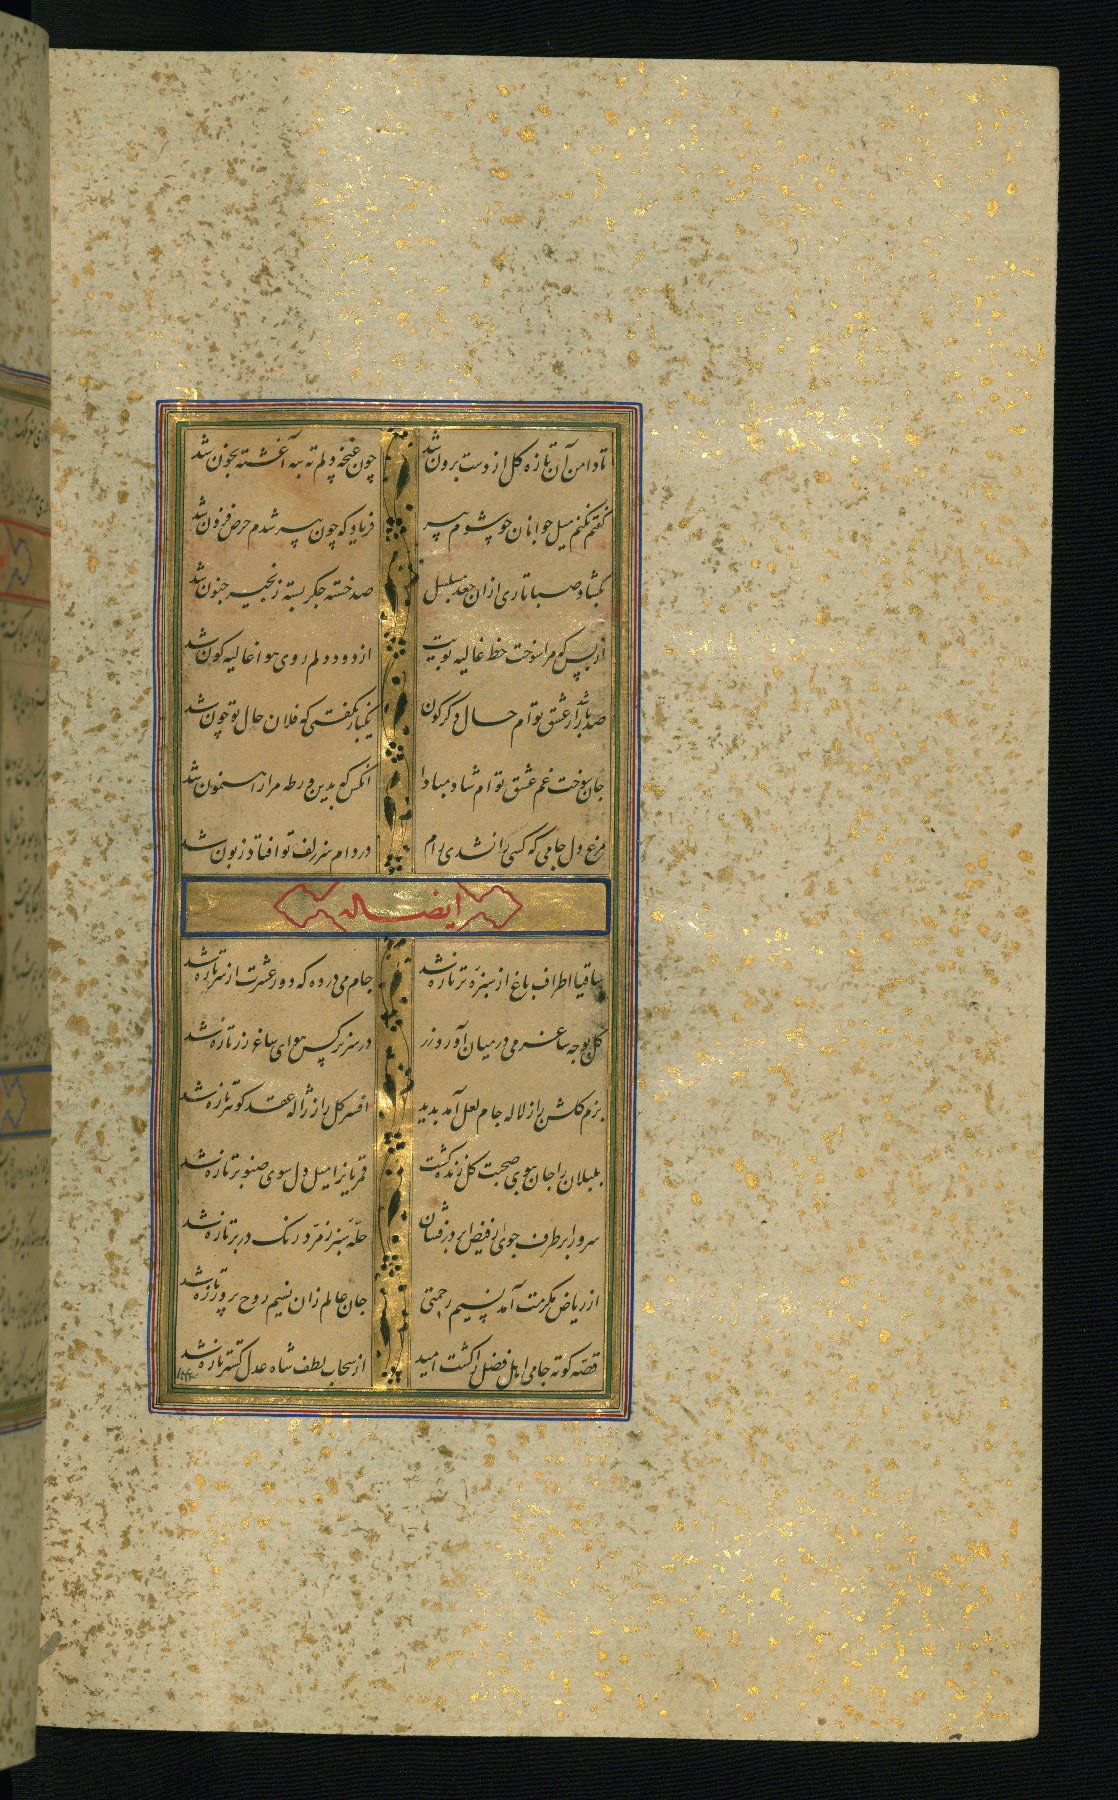 تا دامن آن تازه گل از دست برون شد چون غنچه دلم ته بته آغشته بخون شد
گفتم نکنم میل جوانان چو شوم پیر فریاد که چون پیر شدم حرص فزون شد
بگشاد صبا تاری ازان جعد مسلسل صد خسته جگر بسته زنجیر جنون شد
از بس که مرا سوخت خط غالیه بویت از دود دلم روی هوا غالیه کون شد
صد بار شد از عشق توام حال دگرگون یکبار نگفتی که فلان حال تو چون شد
جان سوخت غم عشق توام شاد مبادا آنکس که بدین ورطه مرا راهنمون شد
مرغ دل جامی که کسی را نشدی رام در دام سر زلف تو افتاد و زبون شد
ایضا له
ساقیا اطراف باغ از سبزه تر تازه شد جام می در ده که دور عشرت از سر تازه شد
گل بوجه ساغر می در میان آورد زر در سر نرگس هوای ساغر زر تازه شد
بزم گلشن را ز لاله جام لعل آمد بدید افسر گل را ز ژاله عقد گوهر تازه شد
بلبلان را جان ببوی صحبت گل زنده گشت قمریانرا میل دل سوی صنوبر تازه شد
سرو را بر طرف جوی از فیض ابر درفشان حله سبز زمرد رنگ در بر تازه شد
از ریاض مکرمت آمد نسیم رحمتی جان عالم زان نسیم روح پرور تازه شد
قصه کوته جامی اهل فضل را کشت امید از سحاب لطف شاه عدل گستر تازه شد